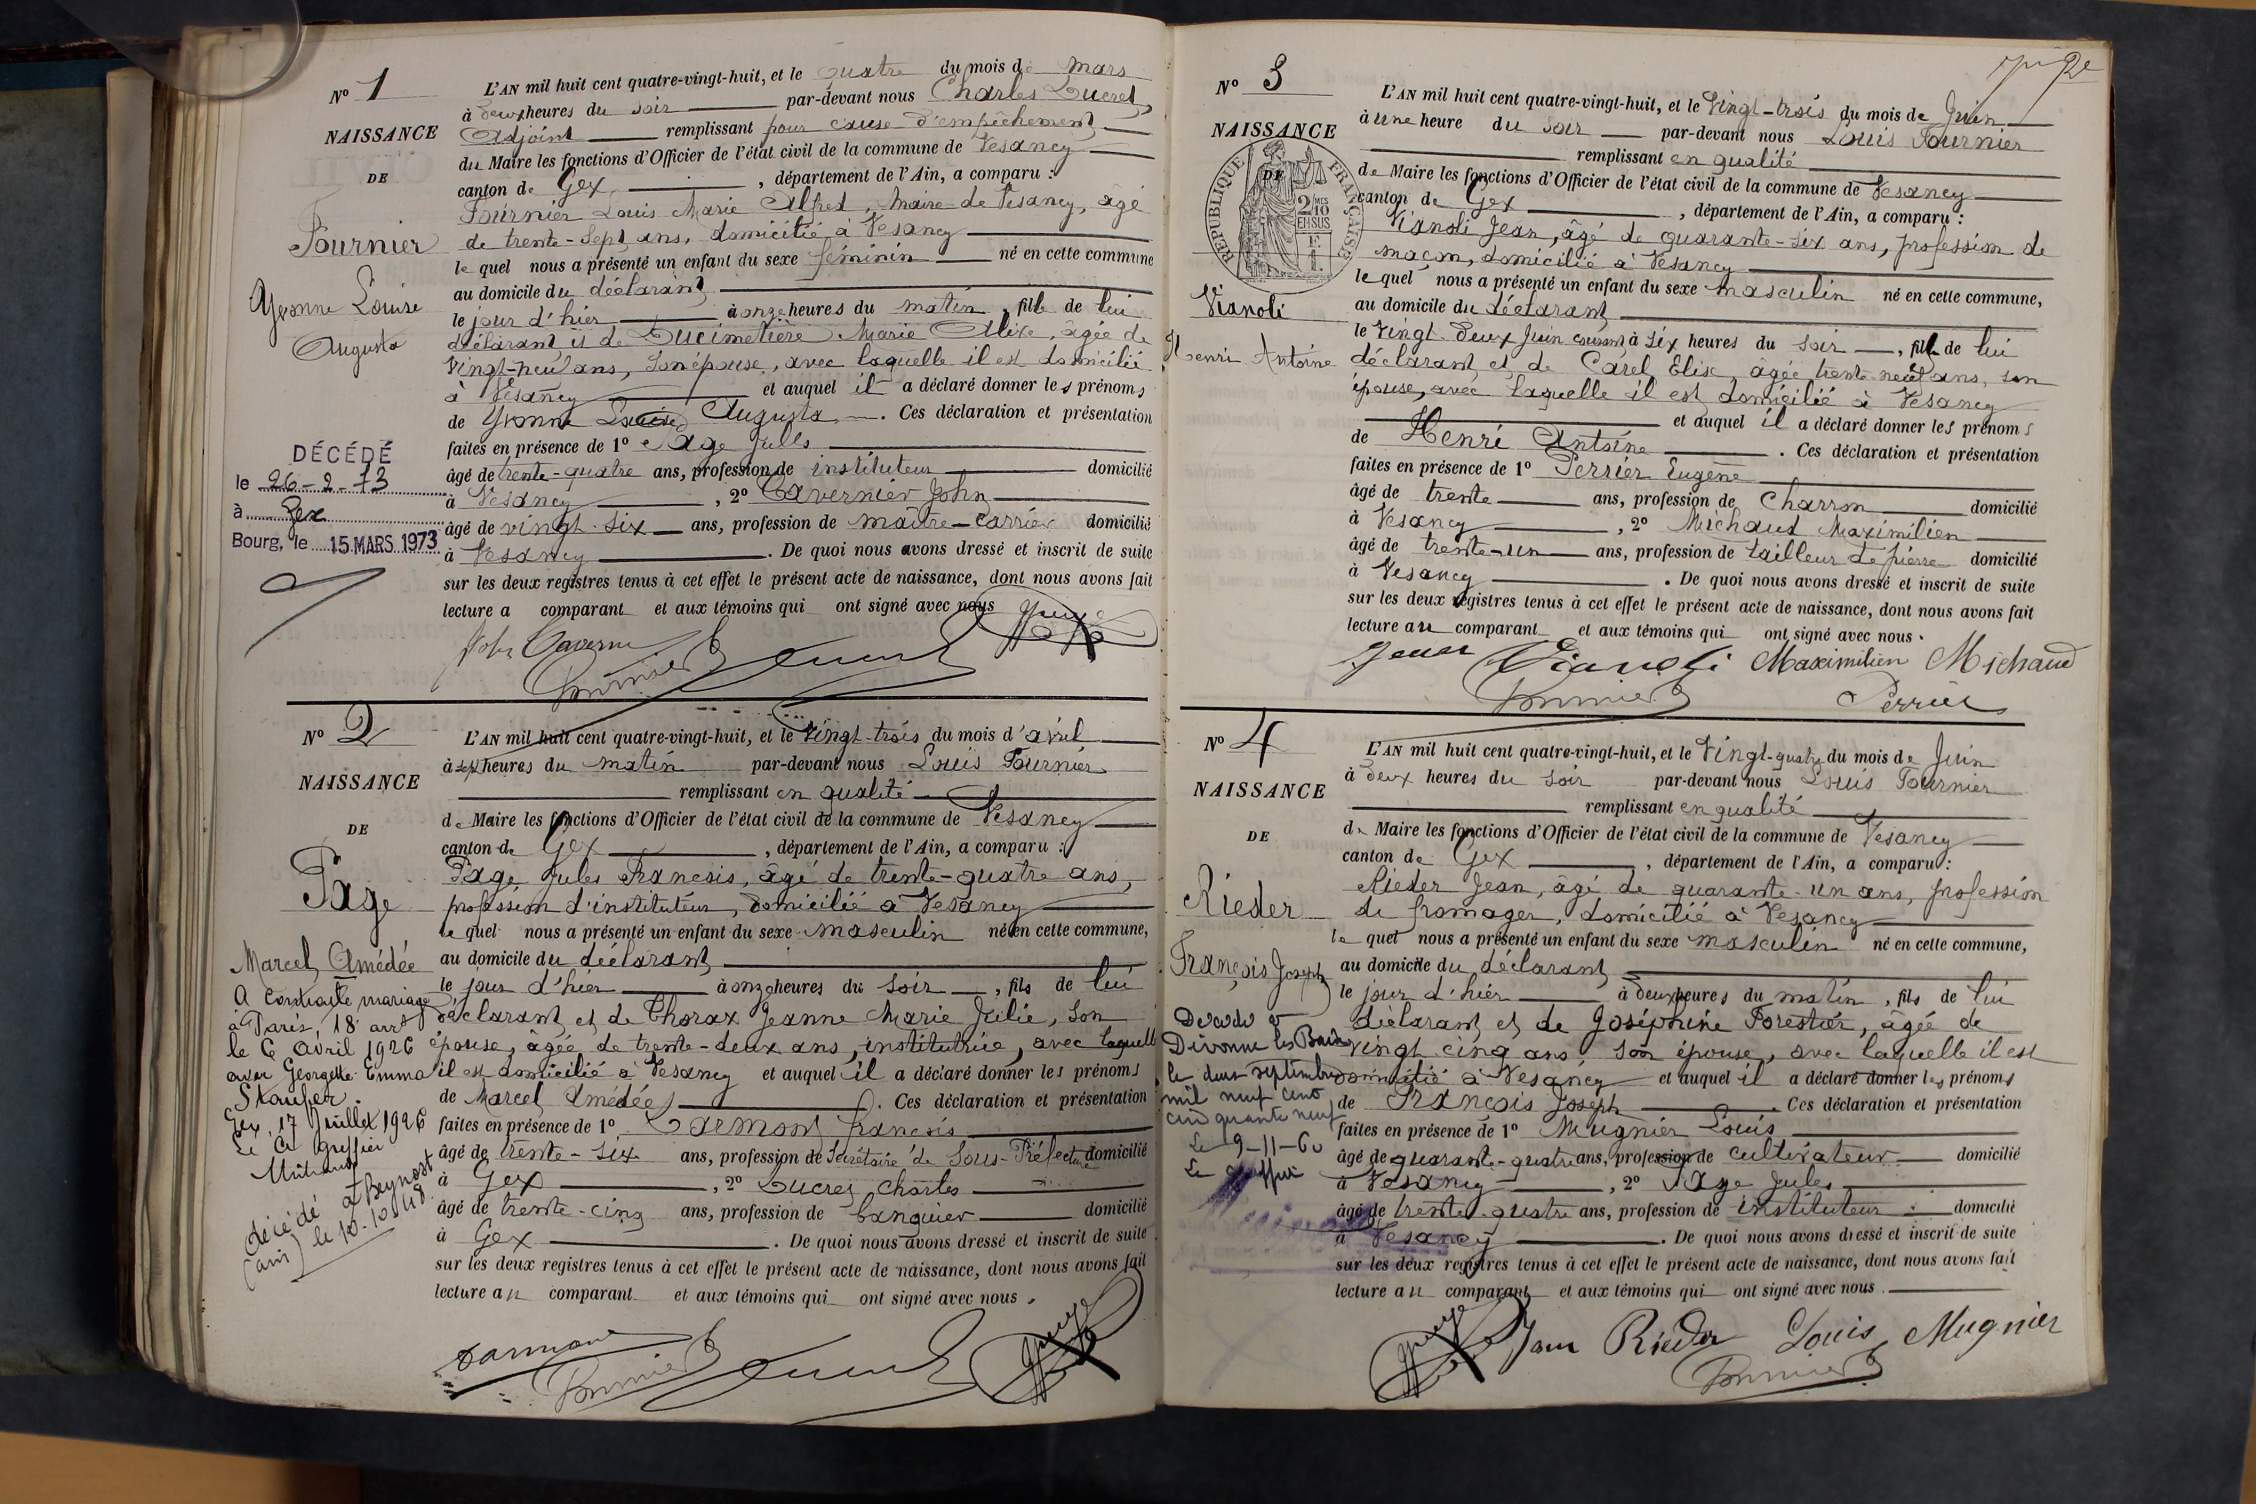 N° 1
NAISSANCE
DE
Fournier
Yvonne Louise
Augusta
DÉCÉDÉ
le 26-2-73
à Gex
Bourg, le 15 MARS 1973
L'AN mil huit cent quatre-vingt-huit, et le quatre du mois de mars
à deux heures du soir par-devant nous Charles Lucret,
Adjoint remplissant pour cause d'empêchement
du Maire les fonctions d'Officier de l'état civil de la commune de Vesancy
canton de Gex, département de l'Ain, a comparu :
Fournier Louis Marie Alfred, Maire de Vesancy, âgé
de trente-sept ans, domicilié à Vesancy
le quel nous a présenté un enfant du sexe féminin né en cette commune
au domicile du déclarant
le jour d'hier à onze heures du matin, fille de lui
déclarant et de Ducimetière Marie Alixe, âgée de
vingt-neuf ans, son épouse, avec laquelle il est domicilié
à Vesancy et auquel il a déclaré donner les prénoms
de Yvonne Louise Augusta. Ces déclaration et présentation
faites en présence de 1° Page Jules
âgé de trente-quatre ans, profession de instituteur domicilié
à Vesancy, 2° Tavernier John
âgé de vingt-six ans, profession de maître-carrier domicilié
à Vesancy. De quoi nous avons dressé et inscrit de suite
sur les deux registres tenus à cet effet le présent acte de naissance, dont nous avons fait
lecture a comparant et aux témoins qui ont signé avec nous
N° 2
NAISSANCE
DE
Page
Marcel Amédée
A contracté mariage
à Paris, 18e arrt
le 6 avril 1926
avec Georgette Emma
Staufer.
Gex, 17 Juillet 1926
Le Cs greffier
décédé à Beynost
(ain) le 10-10-48
L'AN mil huit cent quatre-vingt-huit, et le vingt-trois du mois d'avril
à sept heures du matin par-devant nous Louis Fournier
remplissant en qualité
de Maire les fonctions d'Officier de l'état civil de la commune de Vesancy
canton de Gex, département de l'Ain, a comparu :
Page Jules Francois, âgé de trente-quatre ans,
profession d'instituteur, domicilié à Vesancy
le quel nous a présenté un enfant du sexe masculin né en cette commune,
au domicile du déclarant
le jour d'hier à onze heures du soir, fils de lui
déclarant et de Thorax Jeanne Marie Julie, son
épouse, âgée de trente-deux ans, institutrice, avec laquelle
il est domicilié à Vesancy et auquel il a déclaré donner les prénoms
de Marcel Amédée. Ces déclaration et présentation
faites en présence de 1° Francois
âgé de trente-six ans, profession de Secrétaire de Sous-Préfecture domicilié
à Gex, 2° Lucret Charles
âgé de trente-cinq ans, profession de banquier domicilié
à Gex. De quoi nous avons dressé et inscrit de suite
sur les deux registres tenus à cet effet le présent acte de naissance, dont nous avons fait
lecture au comparant et aux témoins qui ont signé avec nous.
N° 3
NAISSANCE
DE
RÉPUBLIQUE FRANÇAISE
2 MES
10
EN SUS
Vianoli
Henri Antoine
L'AN mil huit cent quatre-vingt-huit, et le vingt-trois du mois de Juin
à une heure du soir par-devant nous Louis Fournier
remplissant en qualité
de Maire les fonctions d'Officier de l'état civil de la commune de Vesancy
canton de Gex, département de l'Ain, a comparu :
Vianoli Jean, âgé de quarante-six ans, profession de
maçon, domicilié à Vesancy
le quel nous a présenté un enfant du sexe masculin né en cette commune,
au domicile du déclarant
le vingt-deux Juin courant à six heures du soir, fils de lui
déclarant et de Carel Elise, âgée trente neuf ans, son
épouse, avec laquelle il est domicilié à Vesancy
et auquel il a déclaré donner les prénoms
de Henri Antoine. Ces déclaration et présentation
faites en présence de 1° Perrier Eugène
âgé de trente ans, profession de charron domicilié
à Vesancy, 2° Michaud Maximilien
âgé de trente-un ans, profession de tailleur de pierre domicilié
à Vesancy. De quoi nous avons dressé et inscrit de suite
sur les deux registres tenus à cet effet le présent acte de naissance, dont nous avons fait
lecture au comparant et aux témoins qui ont signé avec nous.
Jean Vianoli Maximilien Michaud
Perrier
N° 4
NAISSANCE
DE
Rieder
François Joseph
Décédé à
Divonne les Bains
le deux septembre
mil neuf cent
cinquante neuf
Le 9-11-60
Le greffier
L'AN mil huit cent quatre-vingt-huit, et le vingt-quatre du mois de Juin
à deux heures du soir par-devant nous Louis Fournier
remplissant en qualité
de Maire les fonctions d'Officier de l'état civil de la commune de Vesancy
canton de Gex, département de l'Ain, a comparu :
Rieder Jean, âgé de quarante-un ans, profession
de fromager, domicilié à Vesancy
le quel nous a présenté un enfant du sexe masculin né en cette commune,
au domicile du déclarant
le jour d'hier à deux heures du matin, fils de lui
déclarant et de Joséphine Forestier, âgée de
vingt cinq ans son épouse, avec laquelle il est
domicilié à Vesancy et auquel il a déclaré donner les prénoms
de François Joseph. Ces déclaration et présentation
faites en présence de 1° Mugnier Louis
âgé de quarante-quatre ans, profession de cultivateur domicilié
à Vesancy, 2° Page Jules
âgé de trente-quatre ans, profession de instituteur domicilié
à Vesancy. De quoi nous avons dressé et inscrit de suite
sur les deux registres tenus à cet effet le présent acte de naissance, dont nous avons fait
lecture au comparant et aux témoins qui ont signé avec nous.
Jean Rieder Louis Mugnier